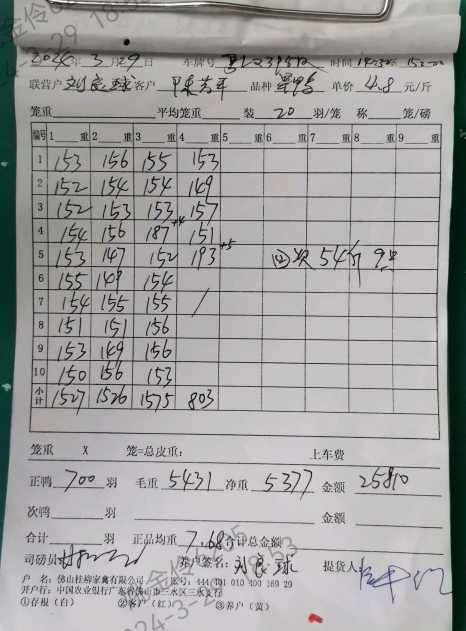 2024年3月29日 车牌号 时间
联营户 刘良球 客户 陈芳平 品种 单价 4.8 元/斤
笼重 平均笼重 装 20 羽/笼 称 笼/磅
编号 1 重 2 重 3 重 4 重 5 重 6 重 7 重 8 重 9 重
1 153 156 155 153
2 152 154 154 149
3 152 153 153 157
4 154 156 187 +4 151
5 153 147 152 193 +5 回次 54斤 9只
6 155 149 154
7 154 155 155 /
8 151 151 156
9 153 149 156
10 150 156 153
小计 1527 1526 1575 803
笼重 X 笼=总皮重: 上车费
正鸭 700 羽 毛重 5431 净重 5377 金额 25810
次鸭 羽 金额
合计 羽 正品均重 7.68 合计总金额
司磅员 养户签名: 刘良球 提货人:
户 名: 佛山桂柳家禽有限公司 账号: 444 401 010 400 169 29
开户行: 中国农业银行广东省佛山市三水区三水支行
①存根(白) ②客户(红) ③养户(黄)